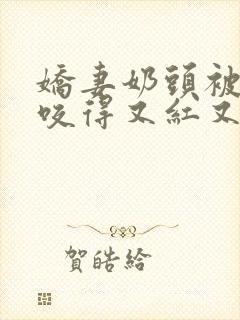 嬌妻奶頭被
咬得又紅又
賀皓給